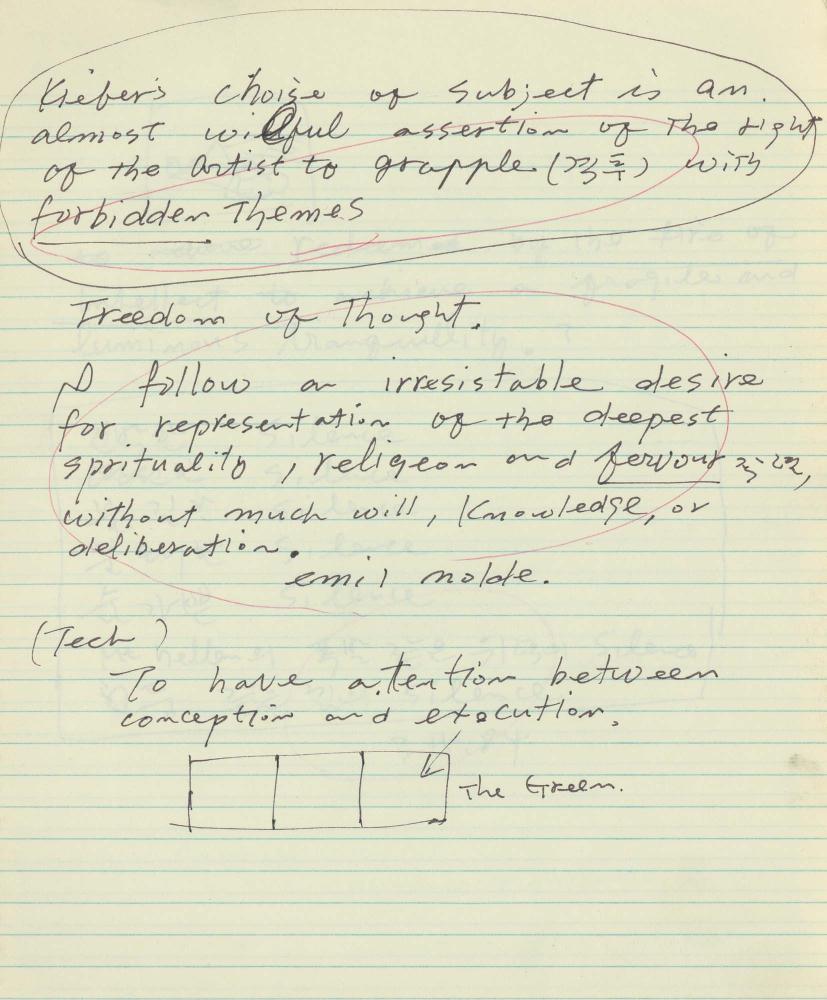 Kiefer's choise of subject is an.
almost wilful assertion of The right
of the artist to grapple (격투) with
forbidden Themes
Freedom of Thought.
I follow an irresistable desire
for representation of the deepest
sprituality, religeon and fervour 열렬,
without much will, Knowledge, or
deliberation.
emil nolde.
(Tech)
To have a tention between
conception and execution.
The Green.